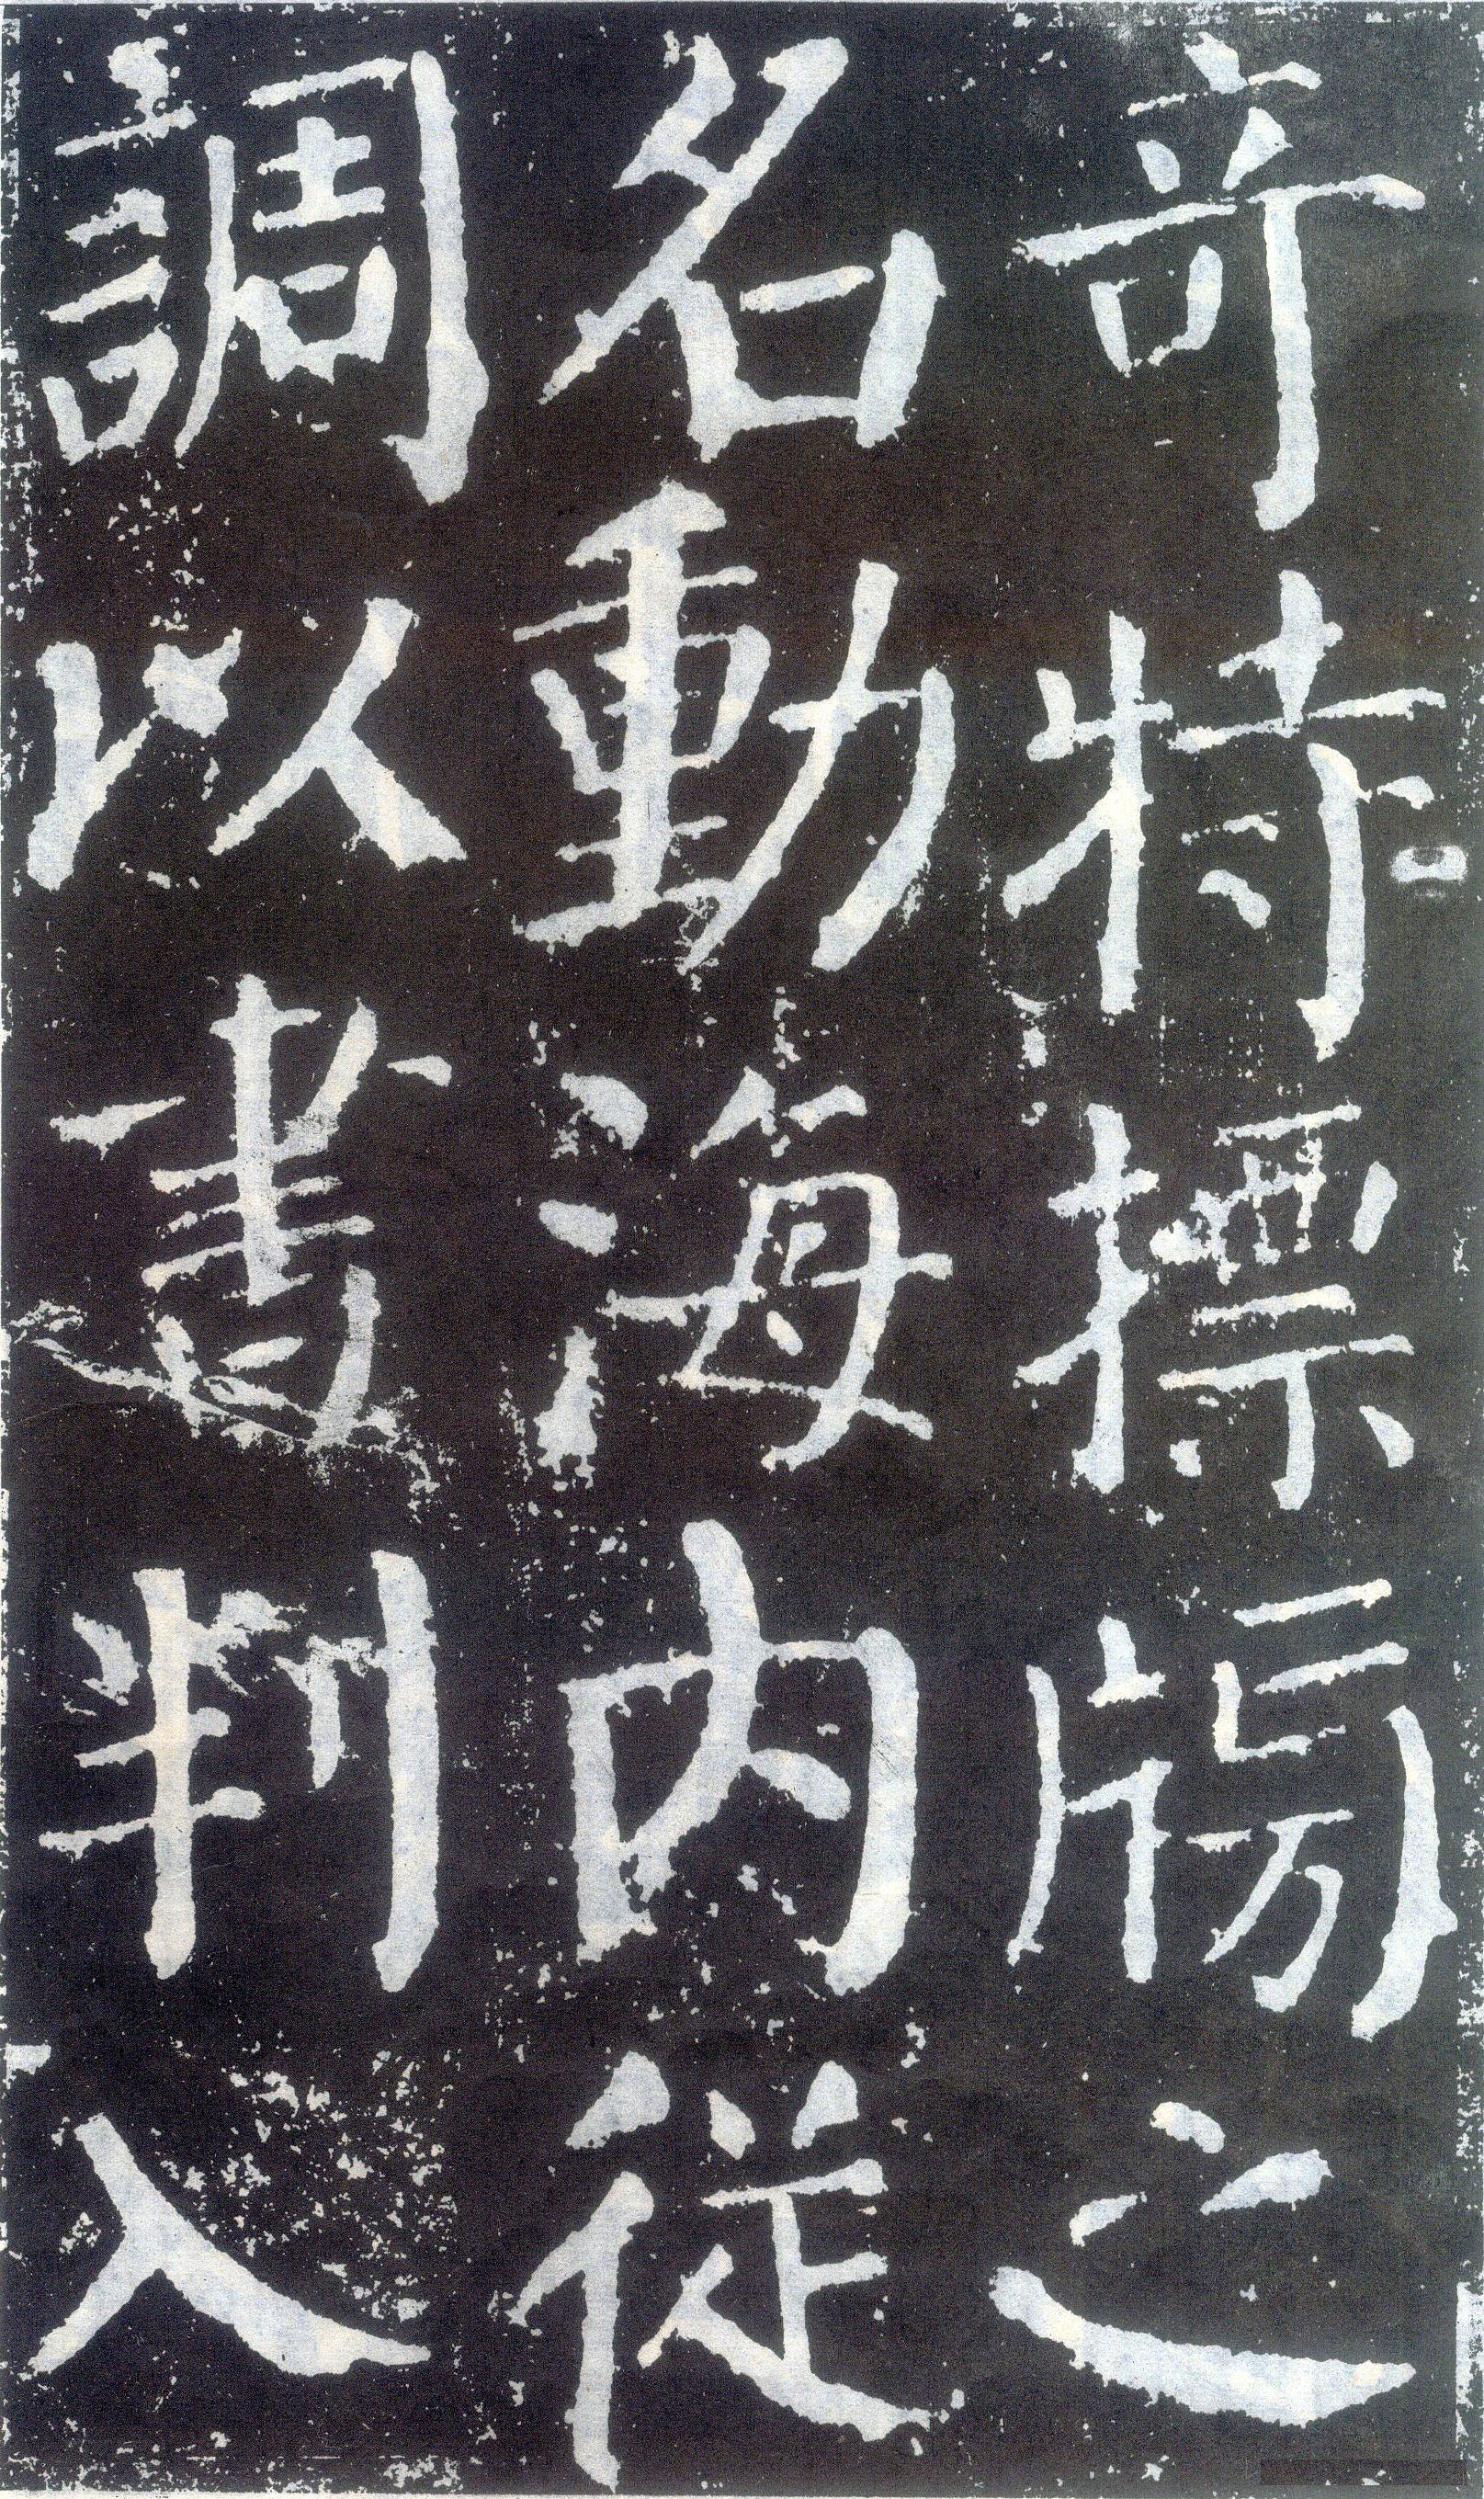 奇特標牓之
名動海內從
調以書判入